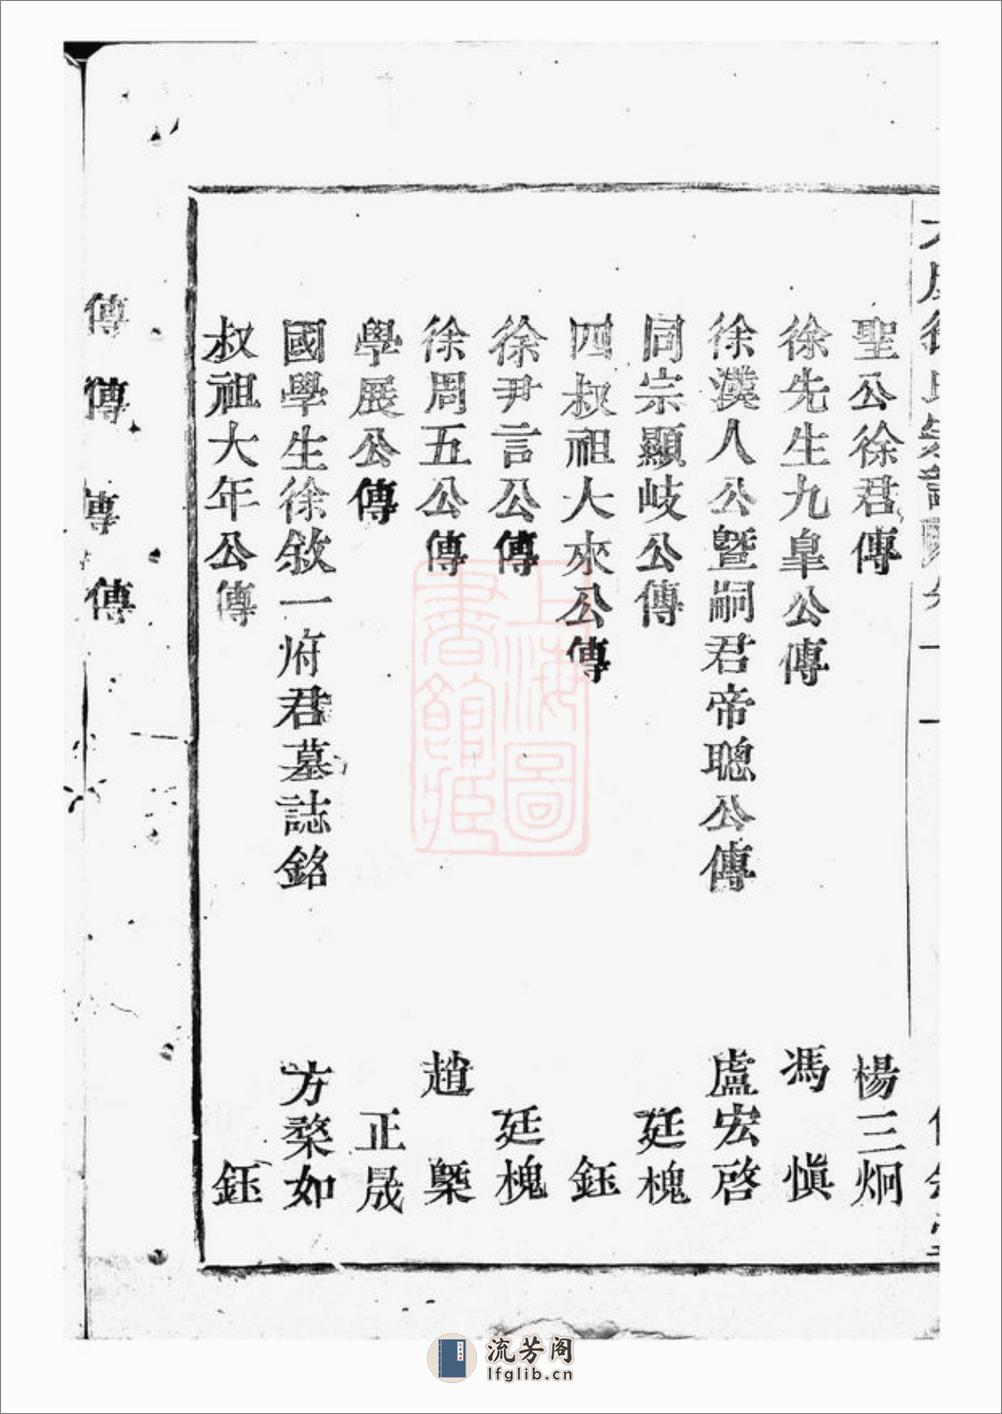 聖公徐君傳　楊三炯
徐先生九皐公傳　馮慎
徐漢人公暨嗣君帝聰公傳　盧宏啓
同宗顯岐公傳　廷槐
四叔祖大來公傳　鈺
徐尹言公傳　廷槐
徐周五公傳　趙
學展公傳　正晟
國學生徐敘一府君墓誌銘　方棻如
叔祖大年公傳　鈺
傳
傳
傳
傳
上海圖書館藏
流芳阁
lfglib.cn